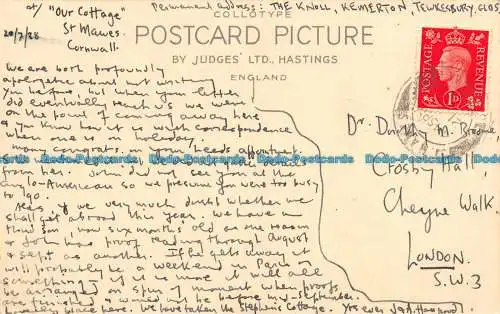 at/ "Our Cottage"
St Mawes.
Cornwall.
20/7/38
Permanent address: THE KNOLL, KEMERTON, TEWKESBURY, GLOS.
COLLOTYPE
POSTCARD PICTURE
BY JUDGES' LTD., HASTINGS
ENGLAND
POSTAGE REVENUE
1D
We are both profoundly
apologetic about not writing
you before, but when your letter
did eventually reach us we were
on the point of coming away here
& you know what it is with correspondence
when one is on holiday.
Many congrats. on your
from her. John did not see you at the
Anglo-American so we presume you were too busy
to go.
we very much doubt whether we
shall get abroad this year. We have an
third son, now six months old as one reason
& John has proof reading through August
& Sept. as another. If he gets away it
will probably be a weekend in Paris or
something & if it were it will all
be arranged on spur of moment when proofs
are finished & would not be before mid-September.
Lovely place here. We have taken the Stephens Cottage. Yrs ever
Dr. Dorothy M. Broome,
Crosby Hall,
Cheyne Walk.
LONDON.
S.W.3
Dodo-Postcards.com Dodo-Postcards.com Dodo-Postcards.com Dodo-Postcards.com